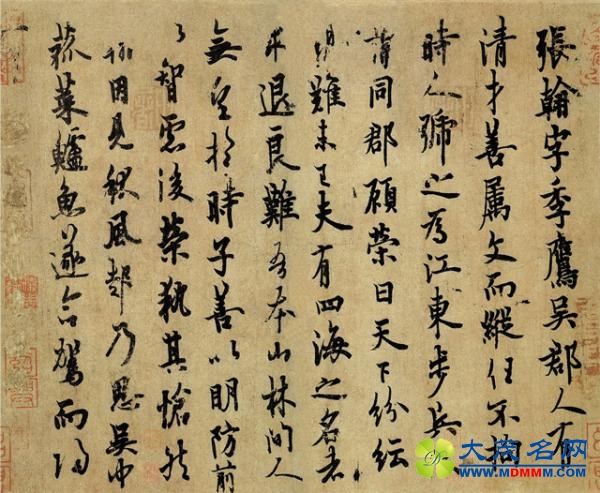 張翰字季鷹吳郡人有
清才善屬文而縱任不拘
時人號之為江東步兵
謂同郡顧榮曰天下紛紜
難未已夫有四海之名者
求退良難吾本山林間人
無望於時子善以明防前
以智慮後榮執其愴然
翰因見秋風起乃思吳中
菰菜鱸魚遂命駕而歸
大茂名网
WWW.MDMMM.COM